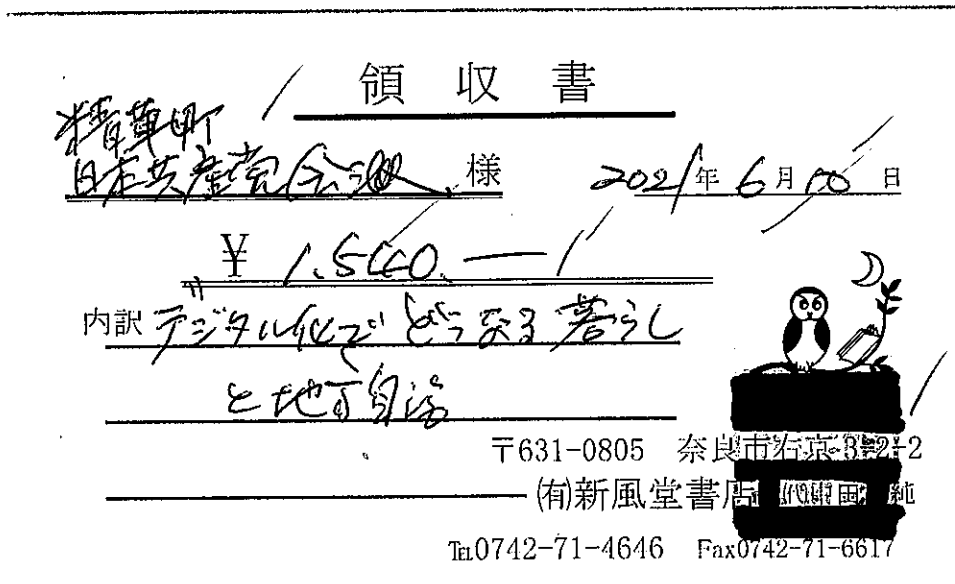 領収書
精華町
日本共産党会派 様
2021年6月10日
¥ 1,540.—
内訳 デジタル化でどうなる暮らし
と地方自治
〒631-0805 奈良市右京3-2-2
㈲新風堂書店
TEL0742-71-4646 Fax0742-71-6617